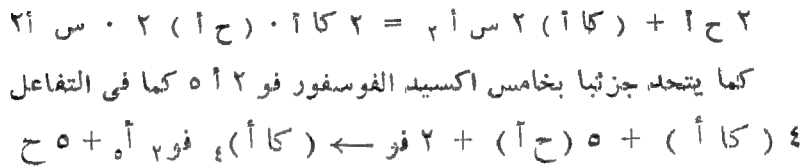 ٢ ح أ + ( كا أ ) ٢ س أ ٢ = ٢ كا أ ٠ ( ح أ ) ٢ ٠ س أ٢
كما يتحد جزئيا بخامس اكسيد الفوسفور فو ٢ أ ٥ كما فى التفاعل
٤ ( كا أ ) + ٥ ( ح أ ) + ٢ فو ← ( كا أ )٤ فو٢ أ٥ + ٥ ح